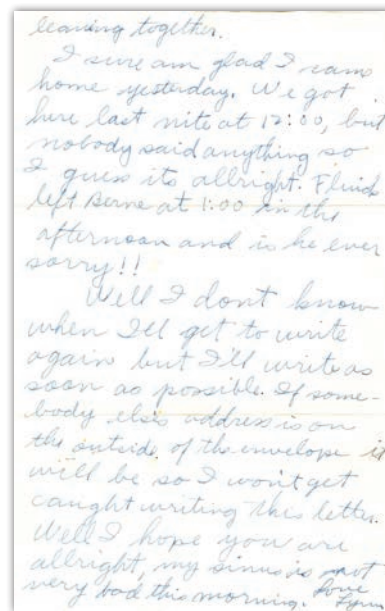 leaving together.
I sure am glad I came
home yesterday. We got
here last nite at 12:00, but
nobody said anything so
I guess its allright. Flink
left Berne at 1:00 in the
afternoon and is he ever
sorry!!
Well I dont know
when I'll get to write
again but I'll write as
soon as possible. If some-
body elses address is on
the outside of the envelope it
will be so I won't get
caught writing this letter.
Well I hope you are
allright, my sinus is not
very bad this morning. Love
Lynn